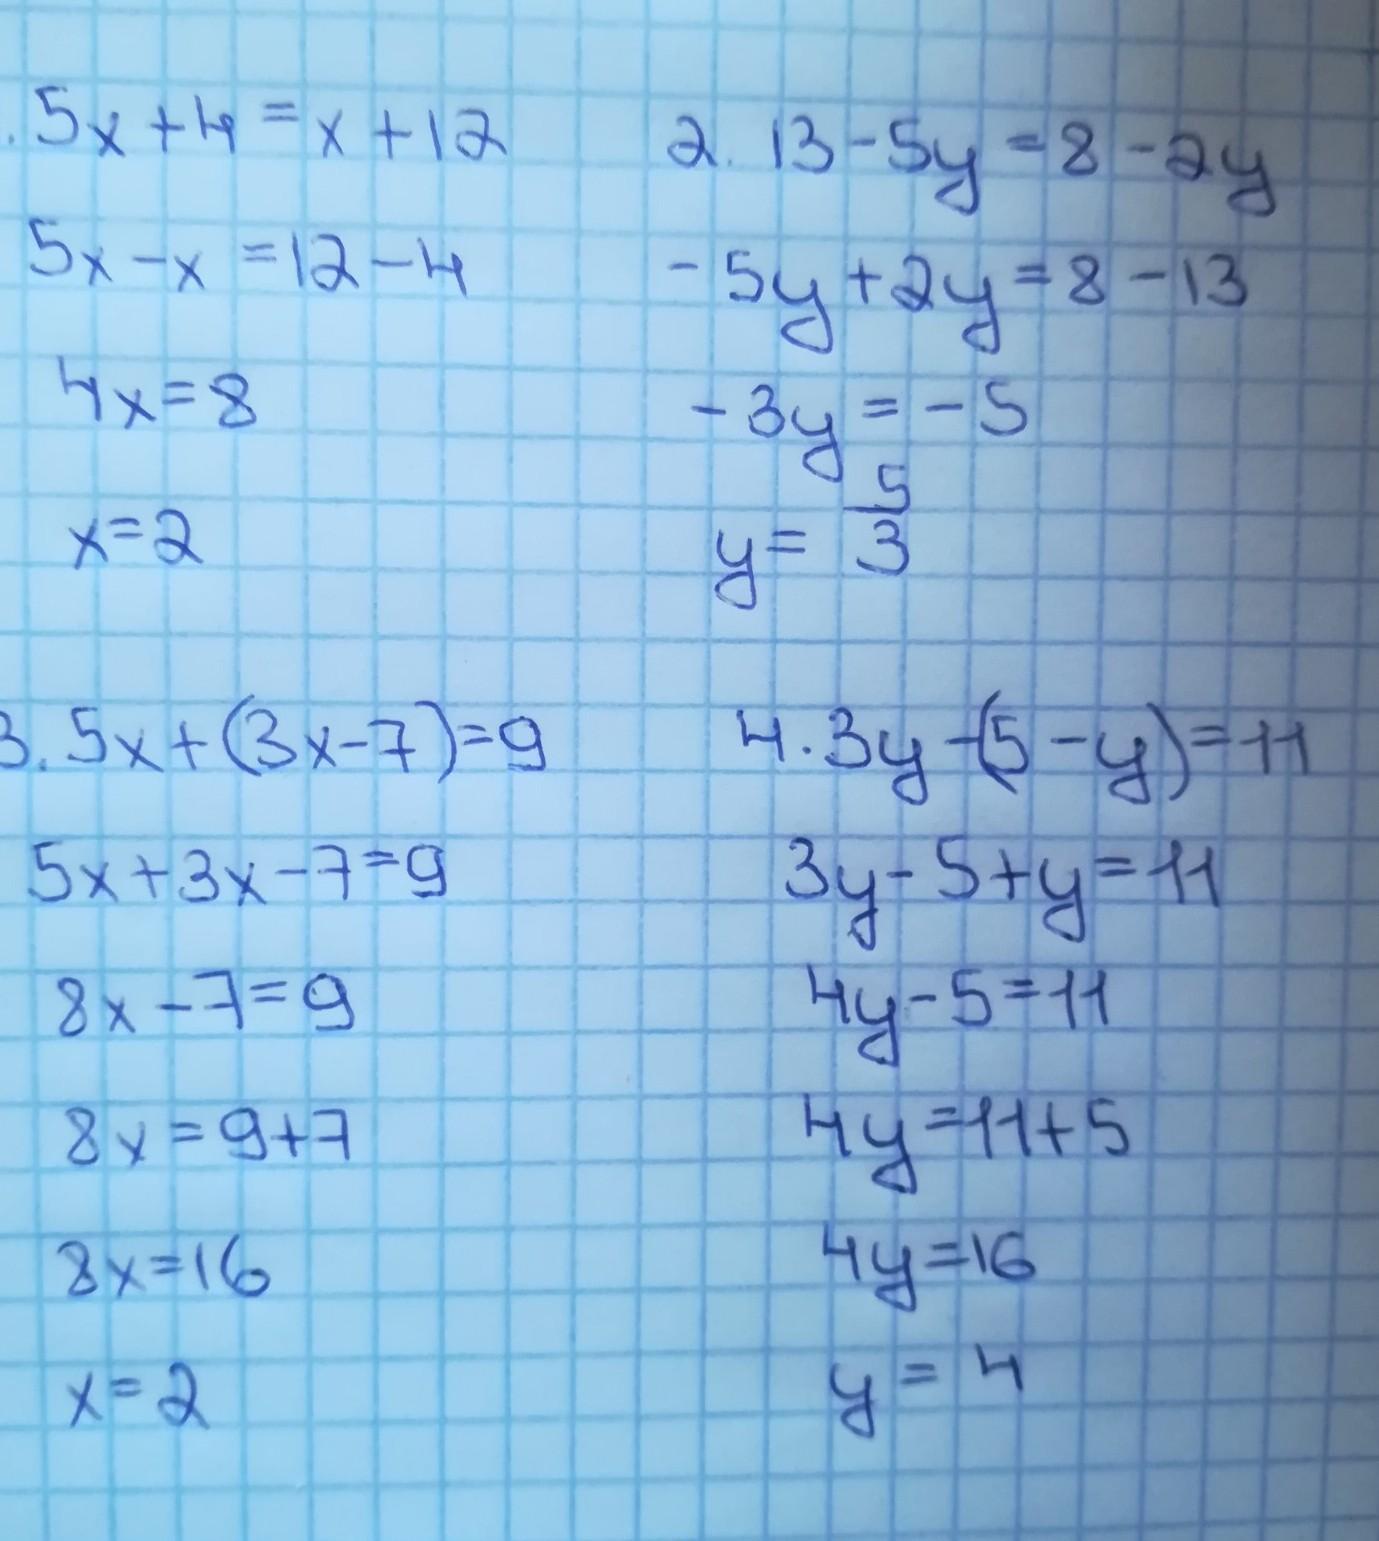 . 5x+4=x+12
5x-x=12-4
4x=8
x=2
2. 13-5y=8-2y
-5y+2y=8-13
-3y=-5
y=5/3
3. 5x+(3x-7)=9
5x+3x-7=9
8x-7=9
8x=9+7
8x=16
x=2
4. 3y-(5-y)=11
3y-5+y=11
4y-5=11
4y=11+5
4y=16
y=4